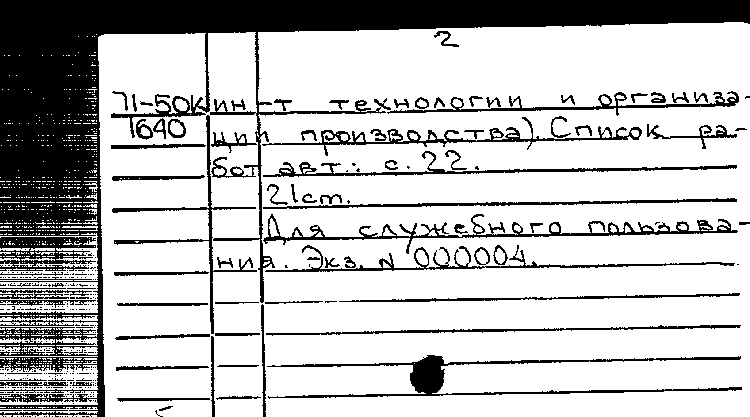 2
71-50к ин-т технологии и организа-
1640 ции производства). Список ра-
бот авт.: с. 22.
21cm.
Для служебного пользова-
ния. Экз. N 000004.